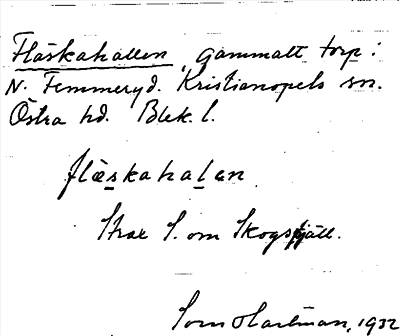 Fläskahallen, gammalt torp i
N. Femmeryd. Kristianopels sn.
Östra hd. Blek. l.
flæskahalan
Strax S. om Skogsfjäll.
Sven Hartman, 1932